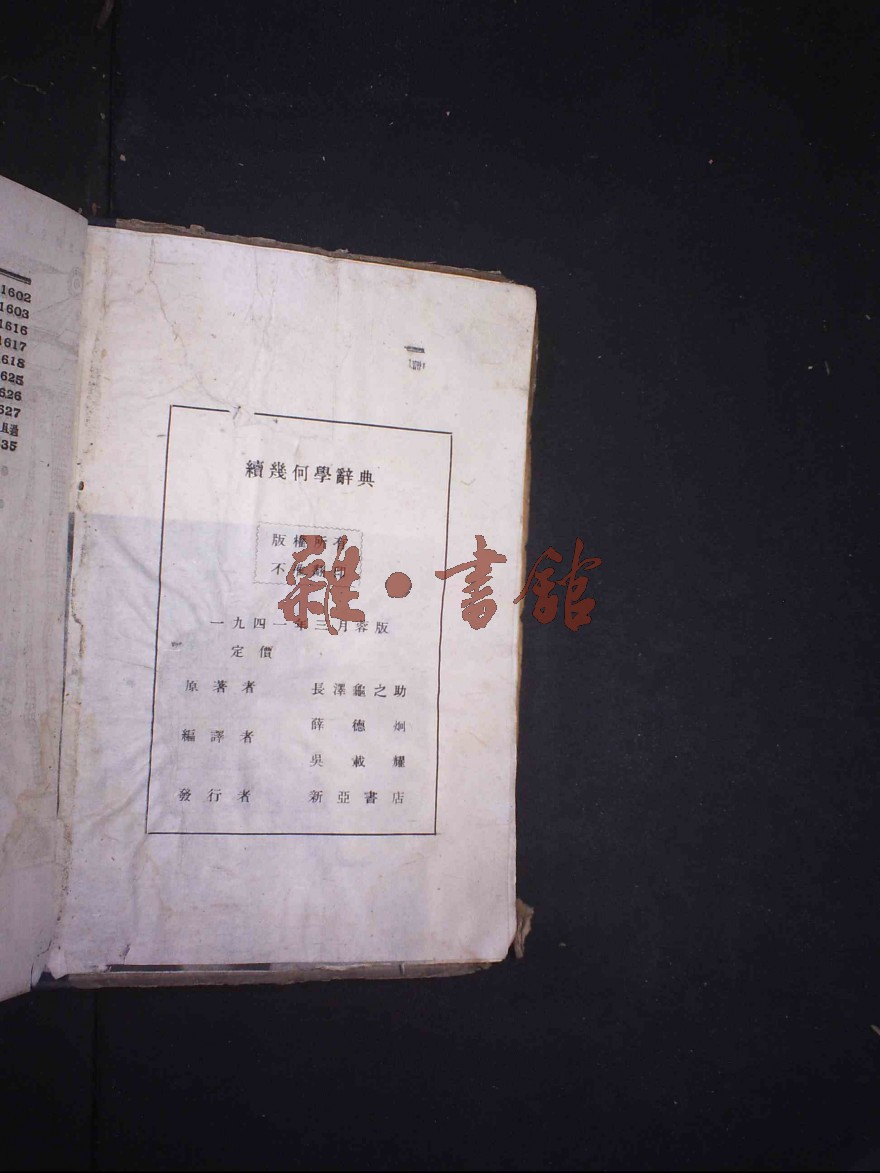 1602
1603
1616
1617
1618
1625
1626
1627
35
續幾何學辭典
版權所有
不准翻印
一九四一年三月蓉版
定價
原著者 長澤龜之助
編譯者 薛德炯
吳載耀
發行者 新亞書店
雜·書館